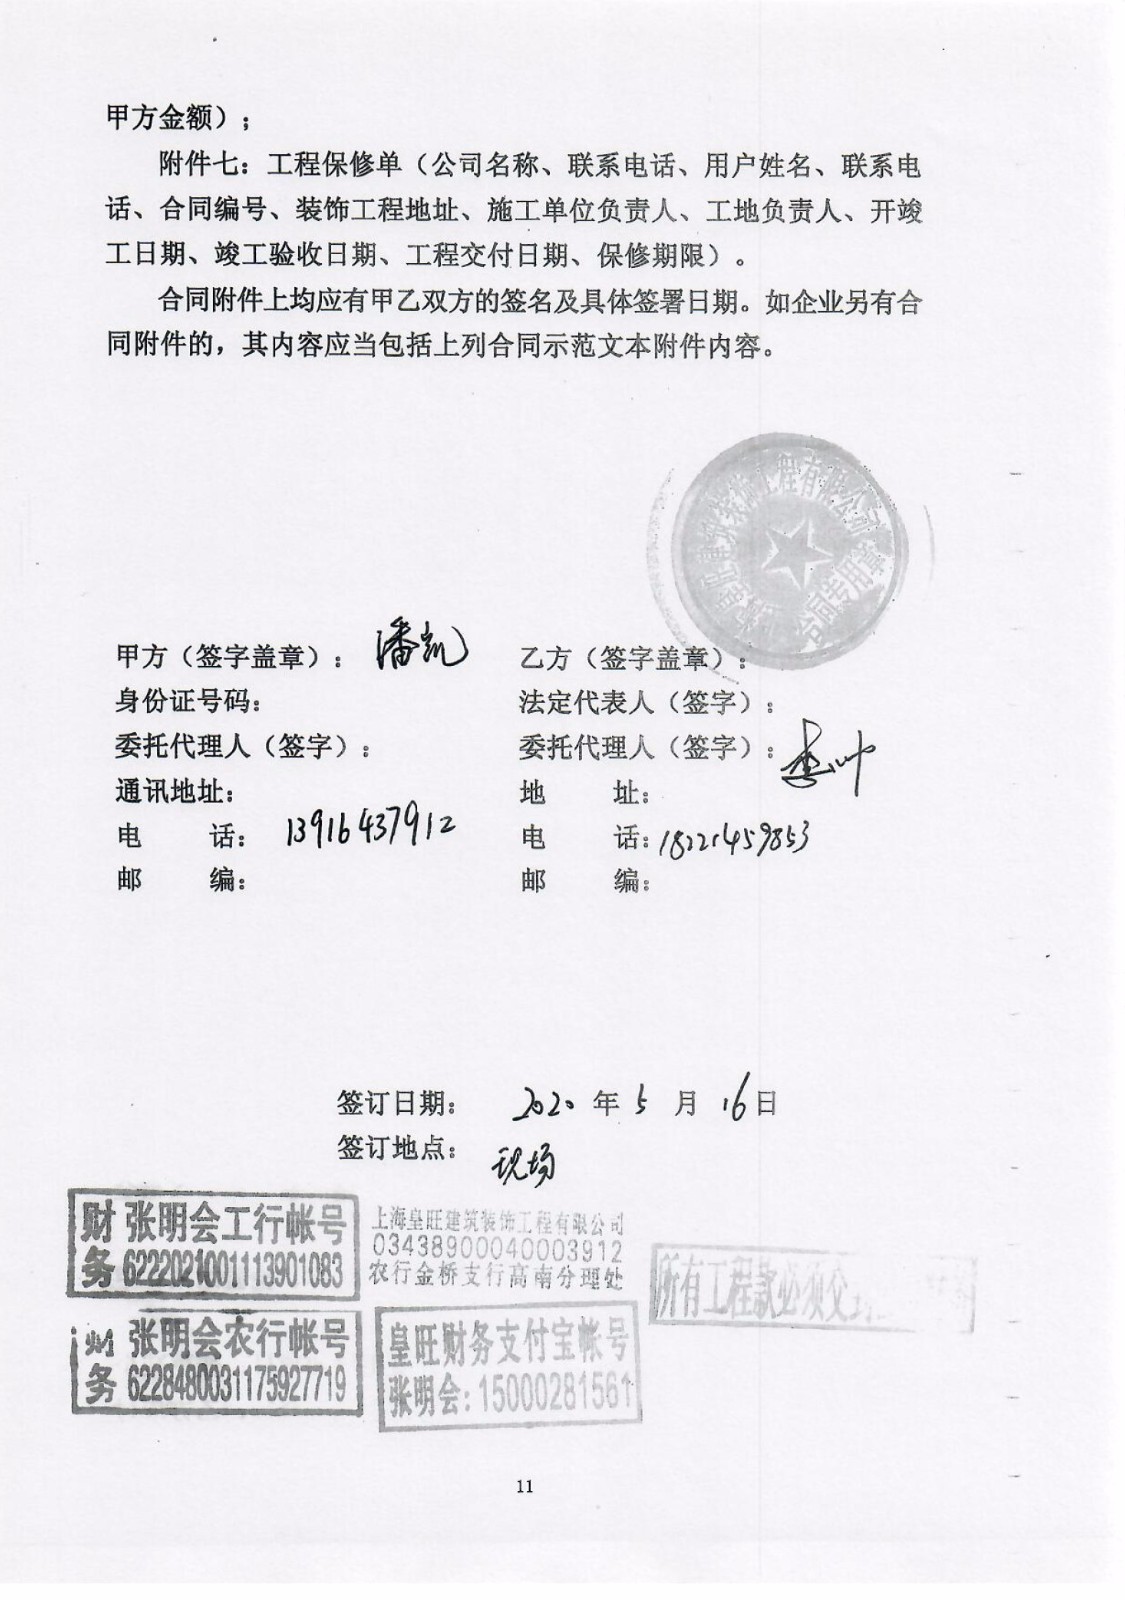 甲方金额）；
附件七：工程保修单（公司名称、联系电话、用户姓名、联系电
话、合同编号、装饰工程地址、施工单位负责人、工地负责人、开竣
工日期、竣工验收日期、工程交付日期、保修期限）。
合同附件上均应有甲乙双方的签名及具体签署日期。如企业另有合
同附件的，其内容应当包括上列合同示范文本附件内容。
建筑装饰工程有限公司
合同专用章
甲方（签字盖章）：潘凯
乙方（签字盖章）：
身份证号码：
法定代表人（签字）：
委托代理人（签字）：
委托代理人（签字）：
通讯地址：
地 址：
电 话：13916437912
电 话：18221459853
邮 编：
邮 编：
签订日期： 2020 年 5 月 16 日
签订地点： 现场
财务 张明会工行帐号
6222021001113901083
上海皇旺建筑装饰工程有限公司
03438900040003912
农行金桥支行高南分理处
所有工程款必须交
务 张明会农行帐号
6228480031175927719
皇旺财务支付宝帐号
张明会：15000281561
11